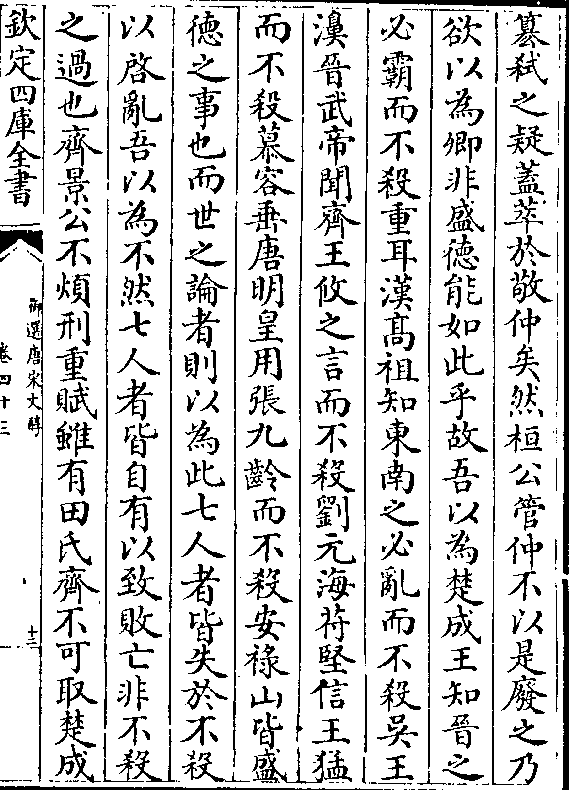 篡弑之疑蓋萃於敬仲矣然桓公管仲不以是廢之乃
欲以為卿非盛德能如此乎故吾以為楚成王知晉之
必霸而不殺重耳漢高祖知東南之必亂而不殺吳王
濞晉武帝聞齊王攸之言而不殺劉元海苻堅信王猛
而不殺慕容垂唐明皇用張九齡而不殺安祿山皆盛
德之事也而世之論者則以為此七人者皆失於不殺
以啓亂吾以為不然七人者皆自有以致敗亡非不殺
之過也齊景公不煩刑重賦雖有田氏齊不可取楚成
欽定四庫全書
御選唐宋文醇
卷四十三
十三